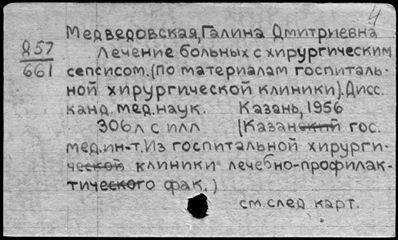 4
Медведовская, Галина Дмитриевна
857
661
Лечение больных с хирургическим
сепсисом. (По материалам госпиталь-
ной хирургической клиники). Дисс.
канд. мед. наук. Казань, 1956
306 л с илл (Казанский гос.
мед. ин-т. Из госпитальной хирурги-
ческой клиники лечебно-профилак-
тического фак.)
см. след карт.